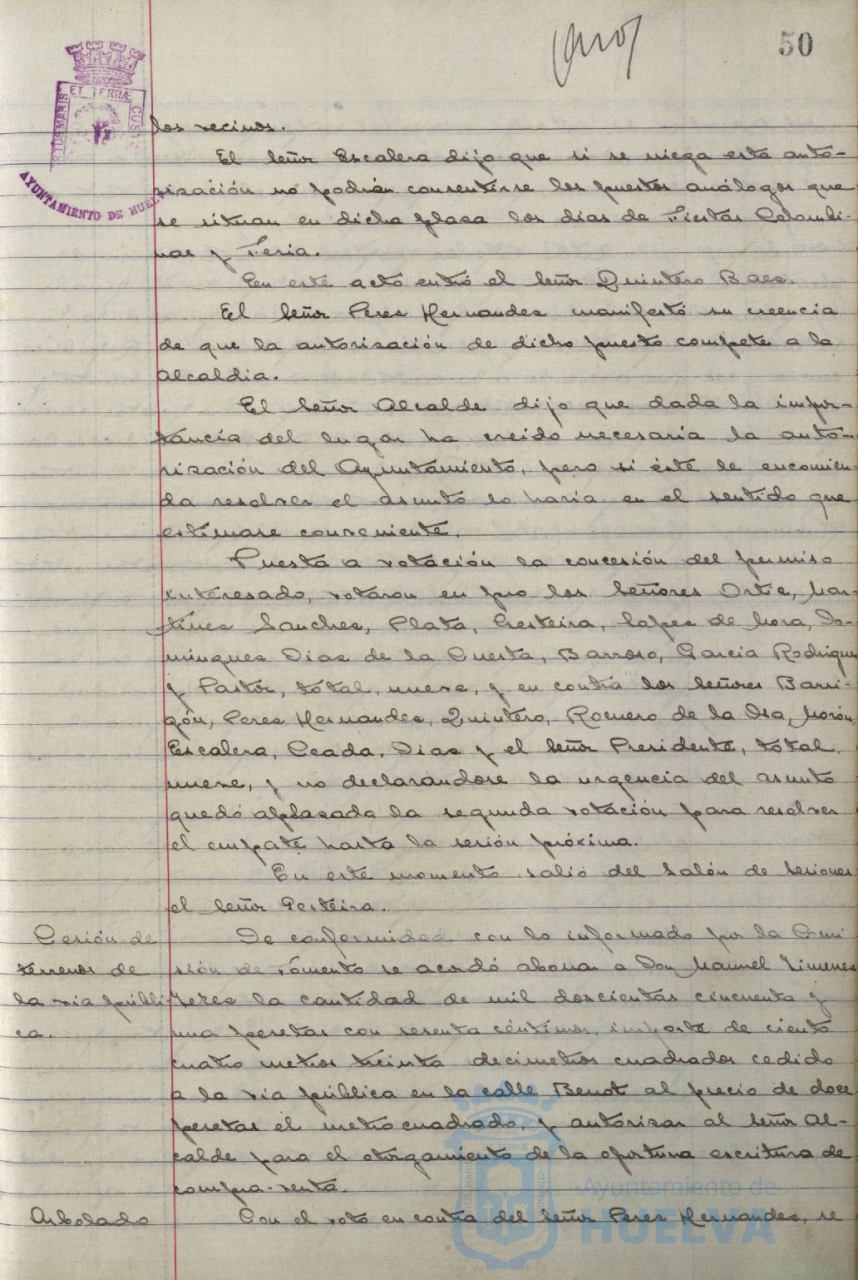 50
ET TERRÆ
AYUNTAMIENTO DE HUEL
los vecinos.
El Señor Escalera dijo que si se niega esta auto-
rización no podrán consentirse los puestos análogos que
se situan en dicha plaza los días de Fiestas Colombi-
nas y Feria.
En este acto entró el Señor Quintero Baez.
El Señor Perez Hernandez manifestó su creencia
de que la autorización de dicho puesto compete a la
Alcaldia.
El Señor Alcalde dijo que dada la impor-
tancia del lugar ha creido necesaria la auto-
rización del Ayuntamiento, pero si éste le encomien-
da resolver el asunto lo haria en el sentido que
estimase conveniente.
Puesta a votación la concesión del permiso
interesado, votaron en pro los Señores Ortiz, Mar-
tinez Sanchez, Plata, Gesteira, Lopez de Mora, Do-
minguez Diaz de la Cuesta, Barroso, García Rodriguez
y Pastor, total, nueve, y en contra los Señores Barri-
gón, Perez Hernandez, Quintero, Romero de la Osa, Morón,
Escalera, Ceada, Diaz y el Señor Presidente, total,
nueve, y no declarandose la urgencia del asunto
quedó aplazada la segunda votación para resolver
el empate hasta la sesión próxima.
En este momento salió del Salón de Sesiones
el Señor Gesteira.
Cesión de
terrenos de
la via públi-
ca.
De conformidad con lo informado por la Comi
sión de Fomento se acordó abonar a Don Manuel Jimenez
Perez la cantidad de mil doscientas cincuenta y
una pesetas con sesenta céntimos, importe de ciento
cuatro metros treinta decimetros cuadrados cedido
a la via pública en la calle Benot al precio de doce
pesetas el metro cuadrado, y autorizar al Señor Al-
calde para el otorgamiento de la oportuna escritura de
compra-venta.
Arbolado
Con el voto en contra del Señor Perez Hernandez, se
Ayuntamiento de
HUELVA